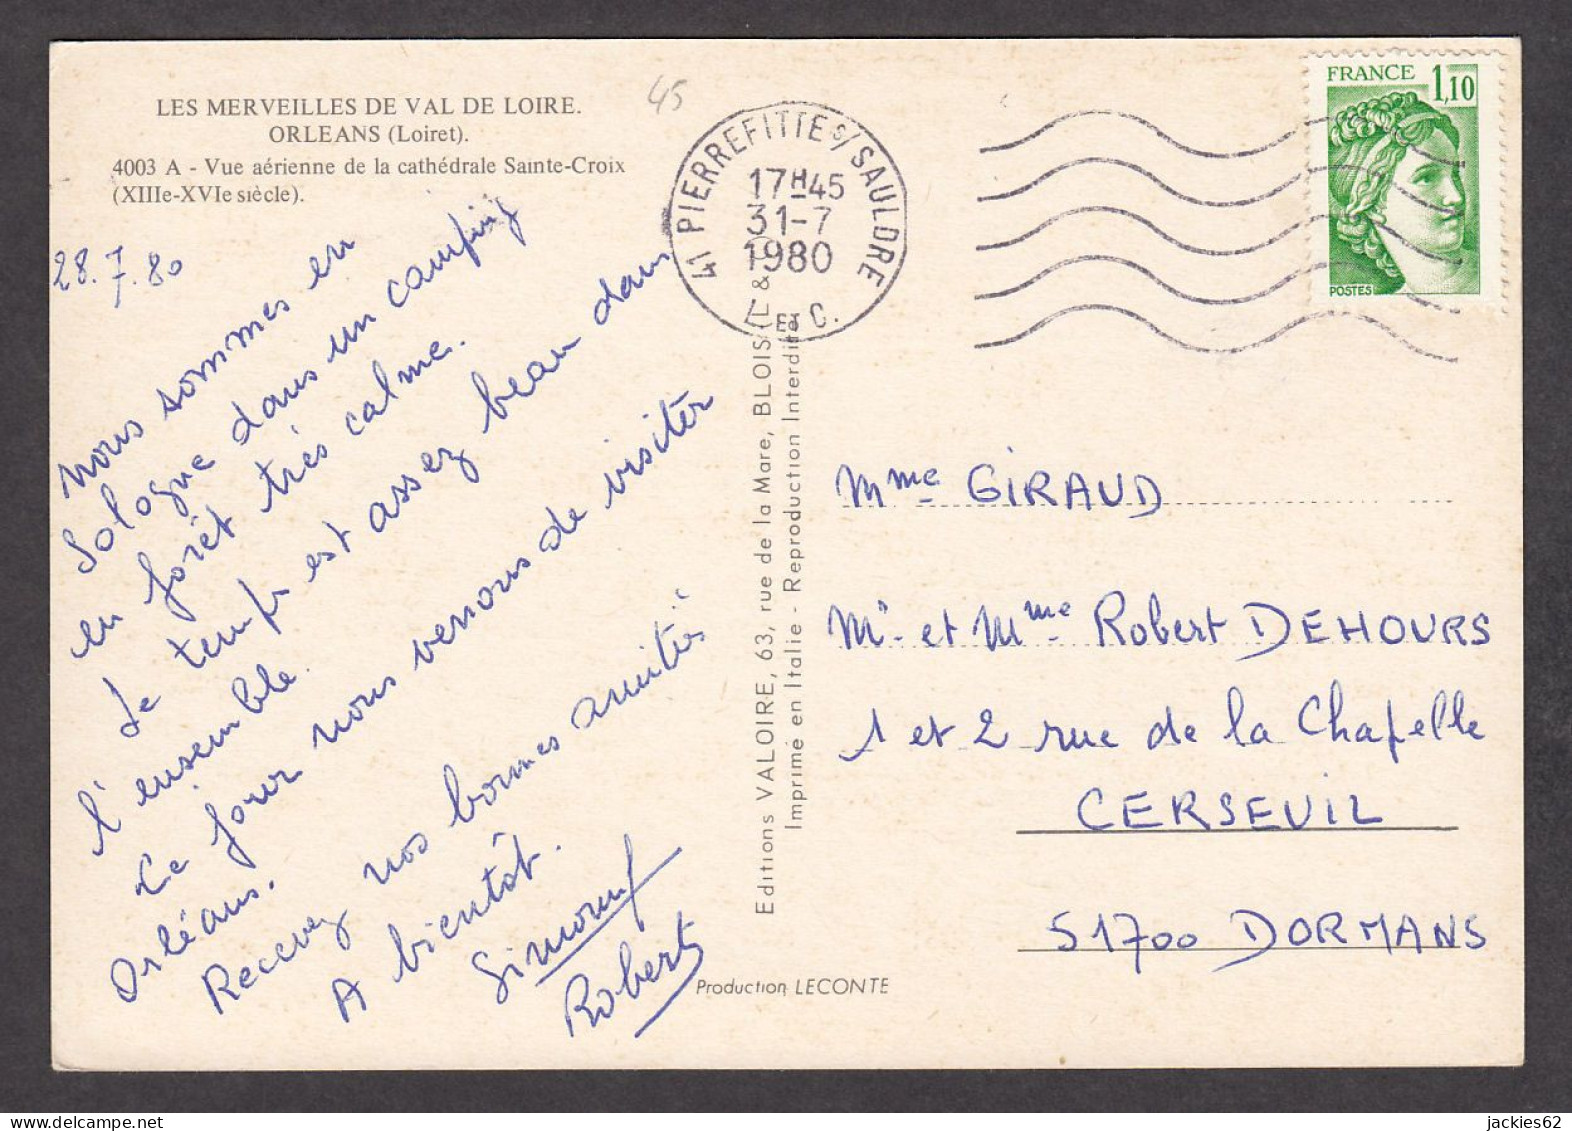 LES MERVEILLES DE VAL DE LOIRE.
ORLEANS (Loiret).
4003 A - Vue aérienne de la cathédrale Sainte-Croix
(XIIIe-XVIe siècle).
45
28.7.80
Nous sommes en
Sologne dans un camping
en forêt très calme.
Le temps est assez beau dans
l'ensemble.
Ce jour nous venons de visiter
Orléans.
Recevez nos bonnes amitiés
A bientôt.
Simone
Robert
41 PIERREFITTE S/SAULDRE
17H45
31-7
1980
L et C.
FRANCE 1,10
POSTES
Editions VALOIRE, 63, rue de la Mare, BLOIS (L & C.
Imprimé en Italie - Reproduction Interdite
Production LECONTE
Mme GIRAUD
Mr et Mme Robert DEHOURS
1 et 2 rue de la Chapelle
CERSEUIL
51700 DORMANS
jackies62